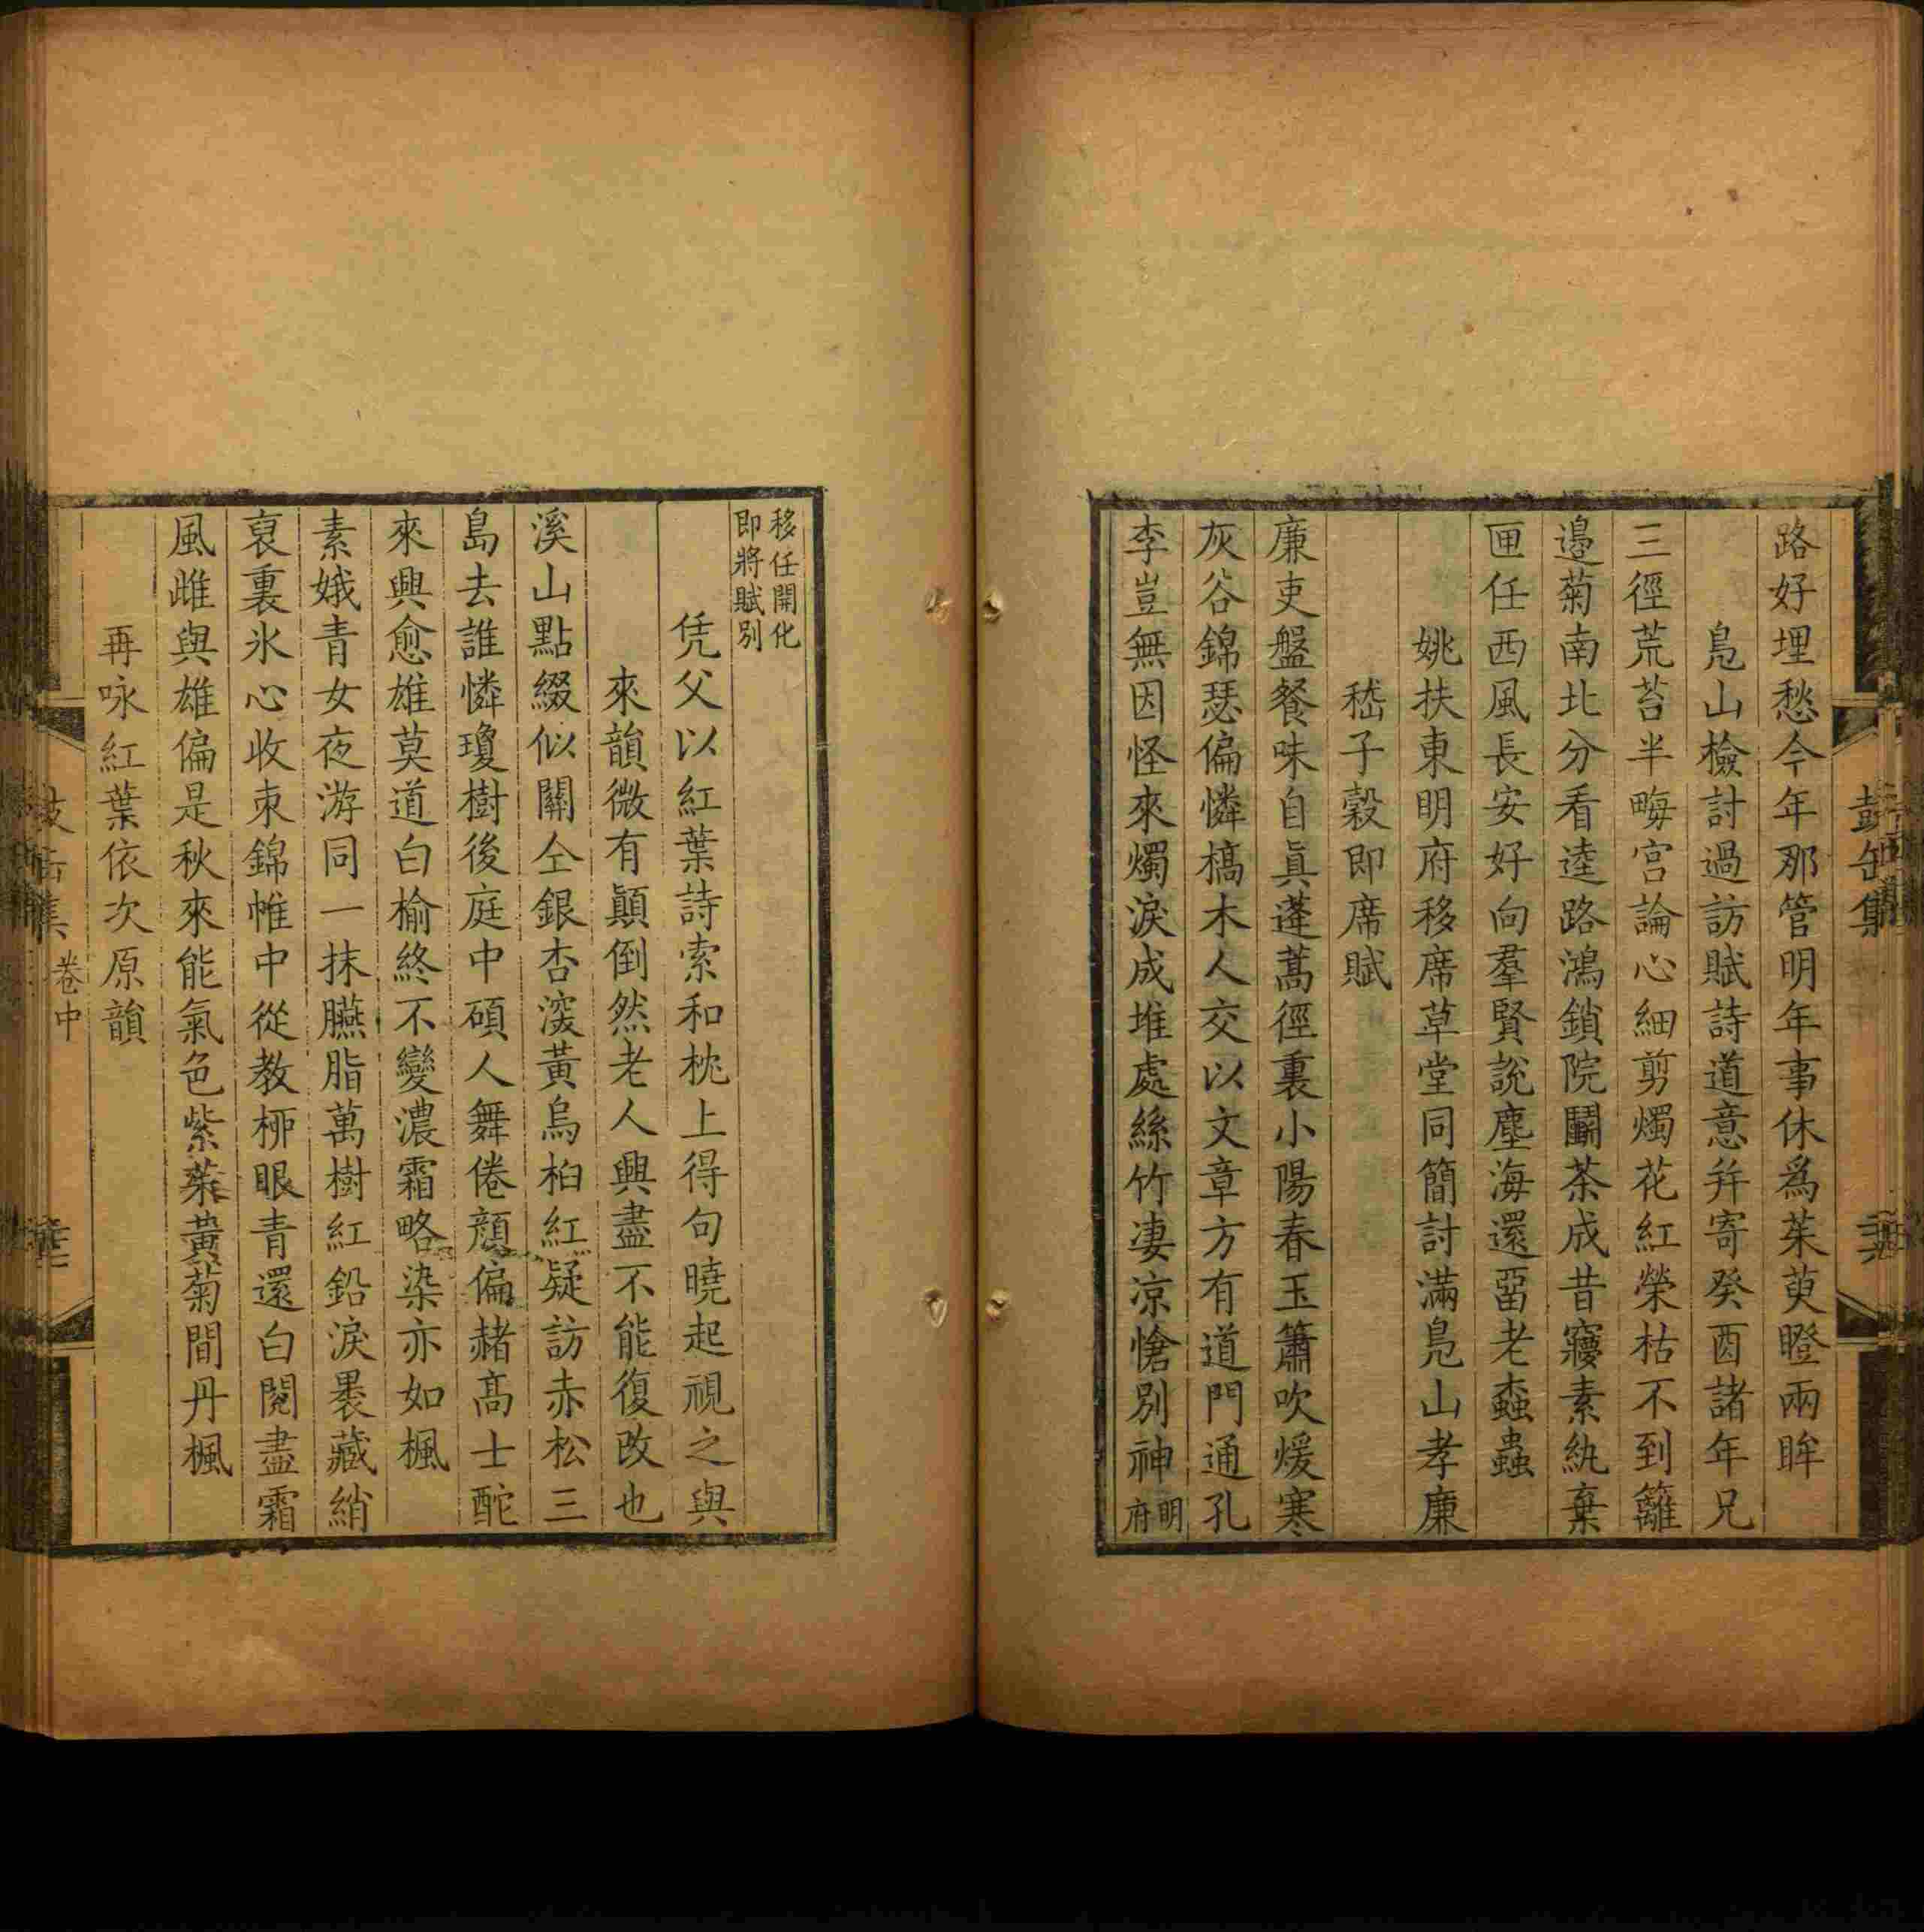 路好埋愁今年那管明年事休爲茱萸瞪兩眸
鳧山檢討過訪賦詩道意并寄癸酉諸年兄
三徑荒苔半畮宮論心細剪燭花紅榮枯不到籬
邉菊南北分看逵路鴻鎖院鬬茶成昔寱素紈棄
匣任西風長安好向羣賢說塵海還畱老蝱蟲
姚扶東明府移席草堂同簡討滿鳧山孝廉
嵇子縠即席賦
廉吏盤餐味自眞蓬蒿徑裏小陽春玉簫吹煖寒
灰谷錦瑟偏憐槁木人交以文章方有道門通孔
李豈無因怪來燭淚成堆處絲竹凄凉愴別神明府
移任開化
即將賦別
凭父以紅葉詩索和枕上得句曉起視之與
來韻微有顚倒然老人興盡不能復改也
溪山點綴似關仝銀杏深黃烏桕紅疑訪赤松三
島去誰憐瓊樹後庭中碩人舞倦顏偏赭高士酡
來興愈雄莫道白榆終不變濃霜略染亦如楓
素娥青女夜游同一抹臙脂萬樹紅鉛淚褁藏綃
裒裏氷心收朿錦帷中從教栁眼青還白閱盡霜
風雌與雄偏是秋來能氣色紫萊黃菊間丹楓
再咏紅葉依次原韻
卷中